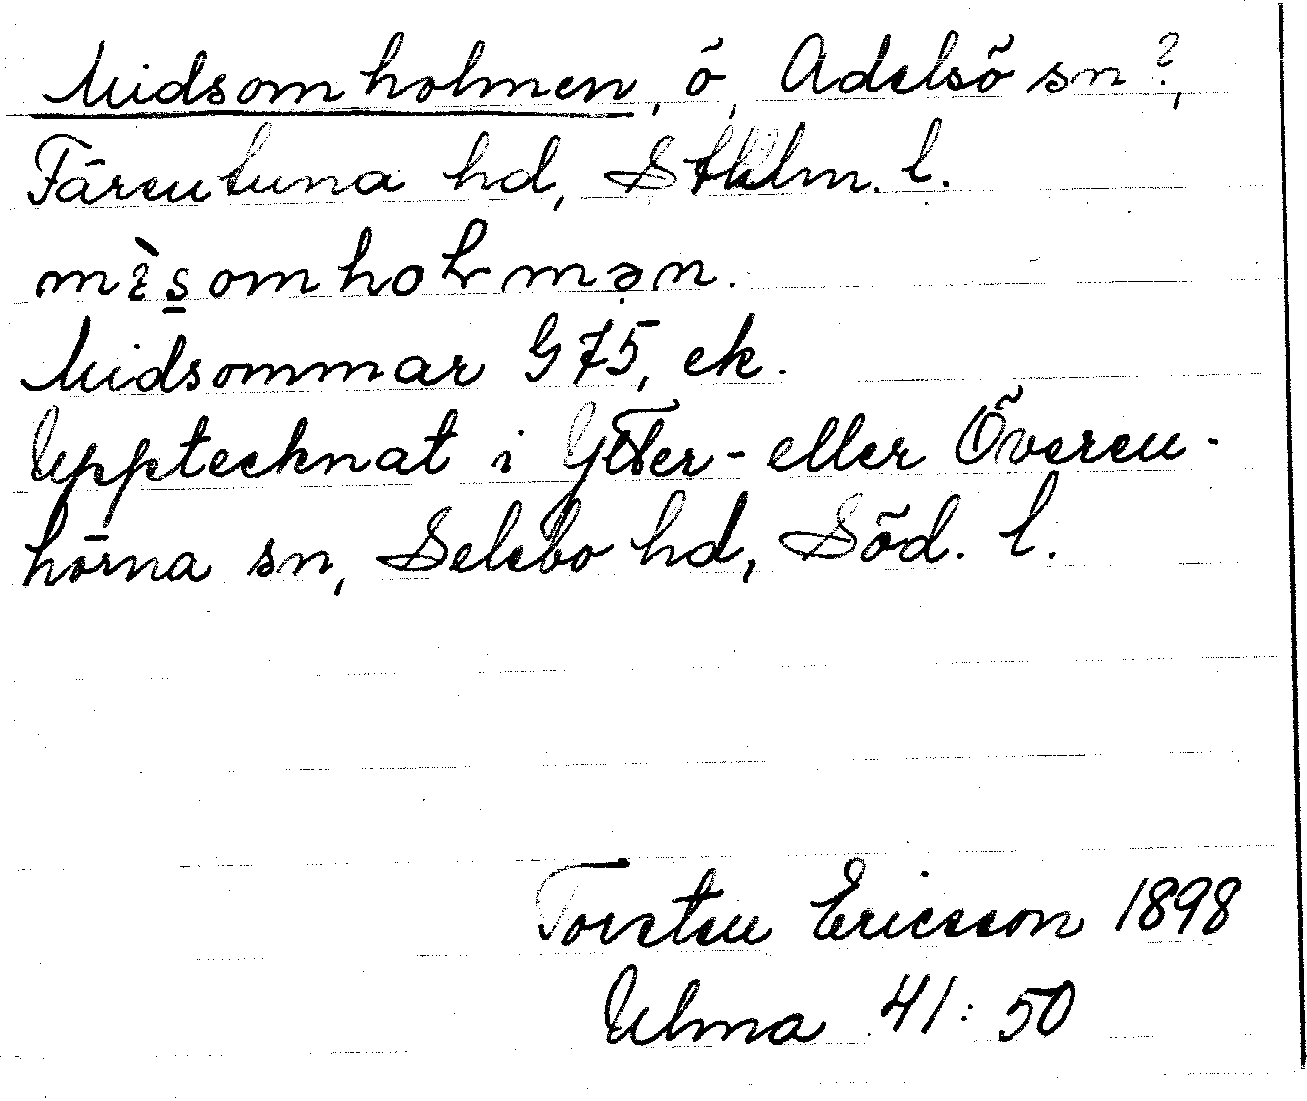 Midsomholmen, ö, Adelsö sn?,
Färentuna hd, Sthlm. l.
mìsomholmən.
Midsommar G 75, ek.
Upptecknat i Ytter- eller Överen-
hörna sn, Selebo hd, Söd. l.
Torsten Ericsson 1898
Ulma 41:50